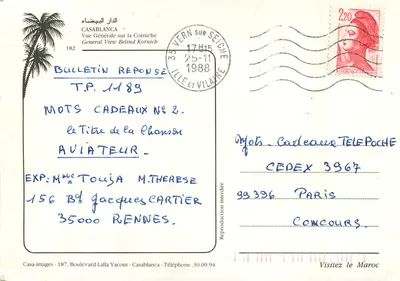 الدار البيضاء
CASABLANCA
Vue Générale sur la Corniche
General View Behind Kornich
182
35 VERN sur SEICHE
17H15
25-11
1988
ILLE et VILAINE
2,20
BULLETIN REPONSE
T.P. 1189
MOTS CADEAUX No 2.
le Titre de la Chanson
AVIATEUR.
EXP: Mme Touja M. THERESE
156 Bd Jacques CARTIER
35000 RENNES.
Mots-Cadeaux TELEPOCHE
CEDEX 3967
99396 PARIS
CONCOURS.
Reproduction interdite
Casa-images - 187, Boulevard Lalla Yacout - Casablanca - Téléphone : 30 09 94
Visitez le Maroc